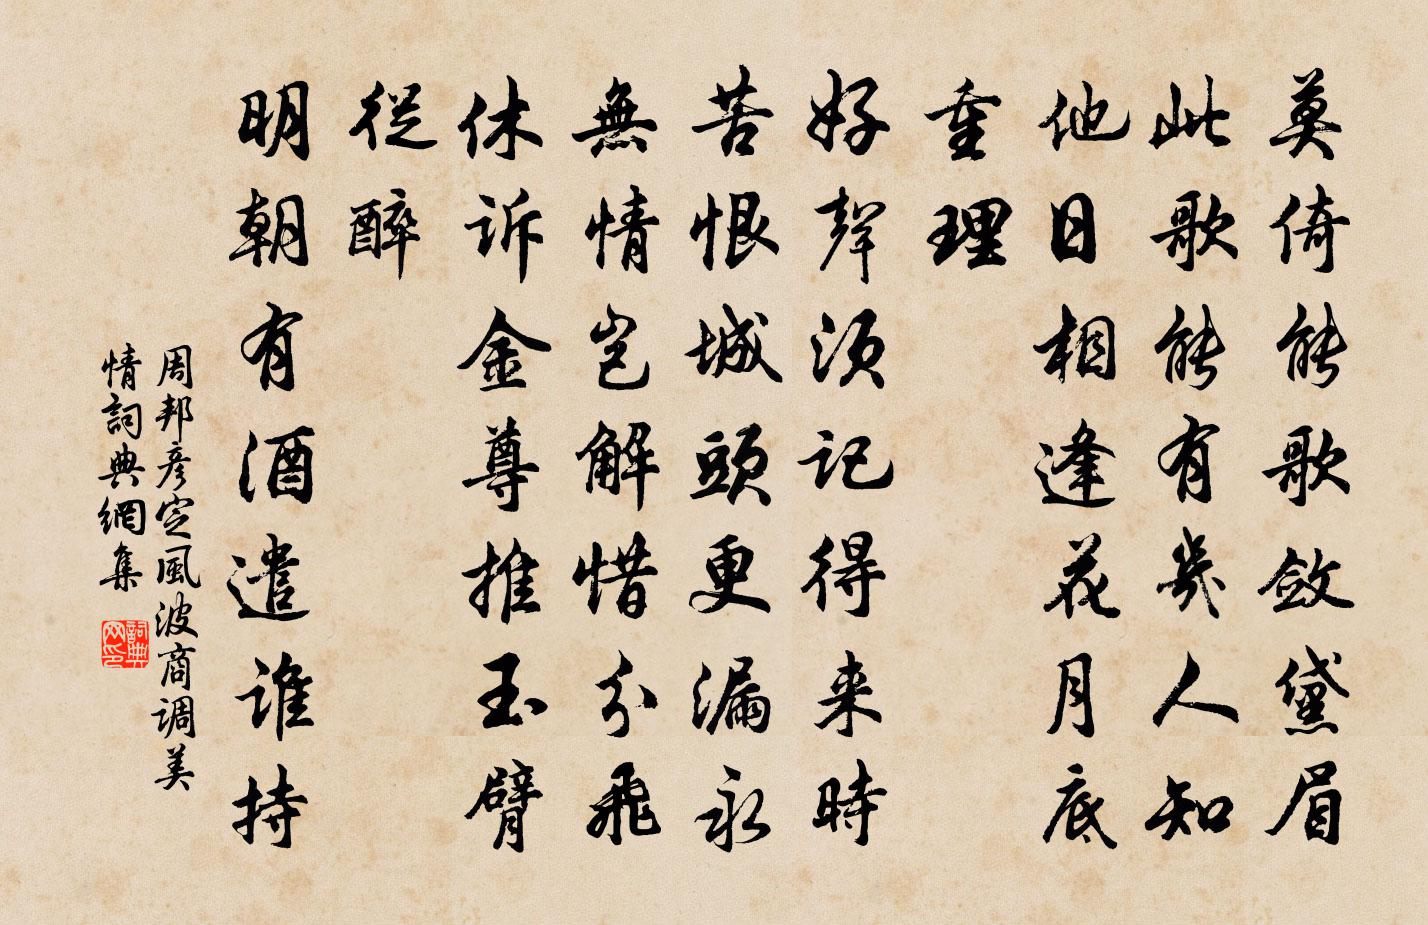 莫倚能歌敛黛眉
此歌能有幾人知
他日相逢花月底
重理
好聲须记得来時
苦恨城頭更漏永
無情岂解惜分飛
休訴金尊推玉臂
從醉
明朝有酒遣谁持
周邦彦定風波商调美
情詞典網集
詞典网印